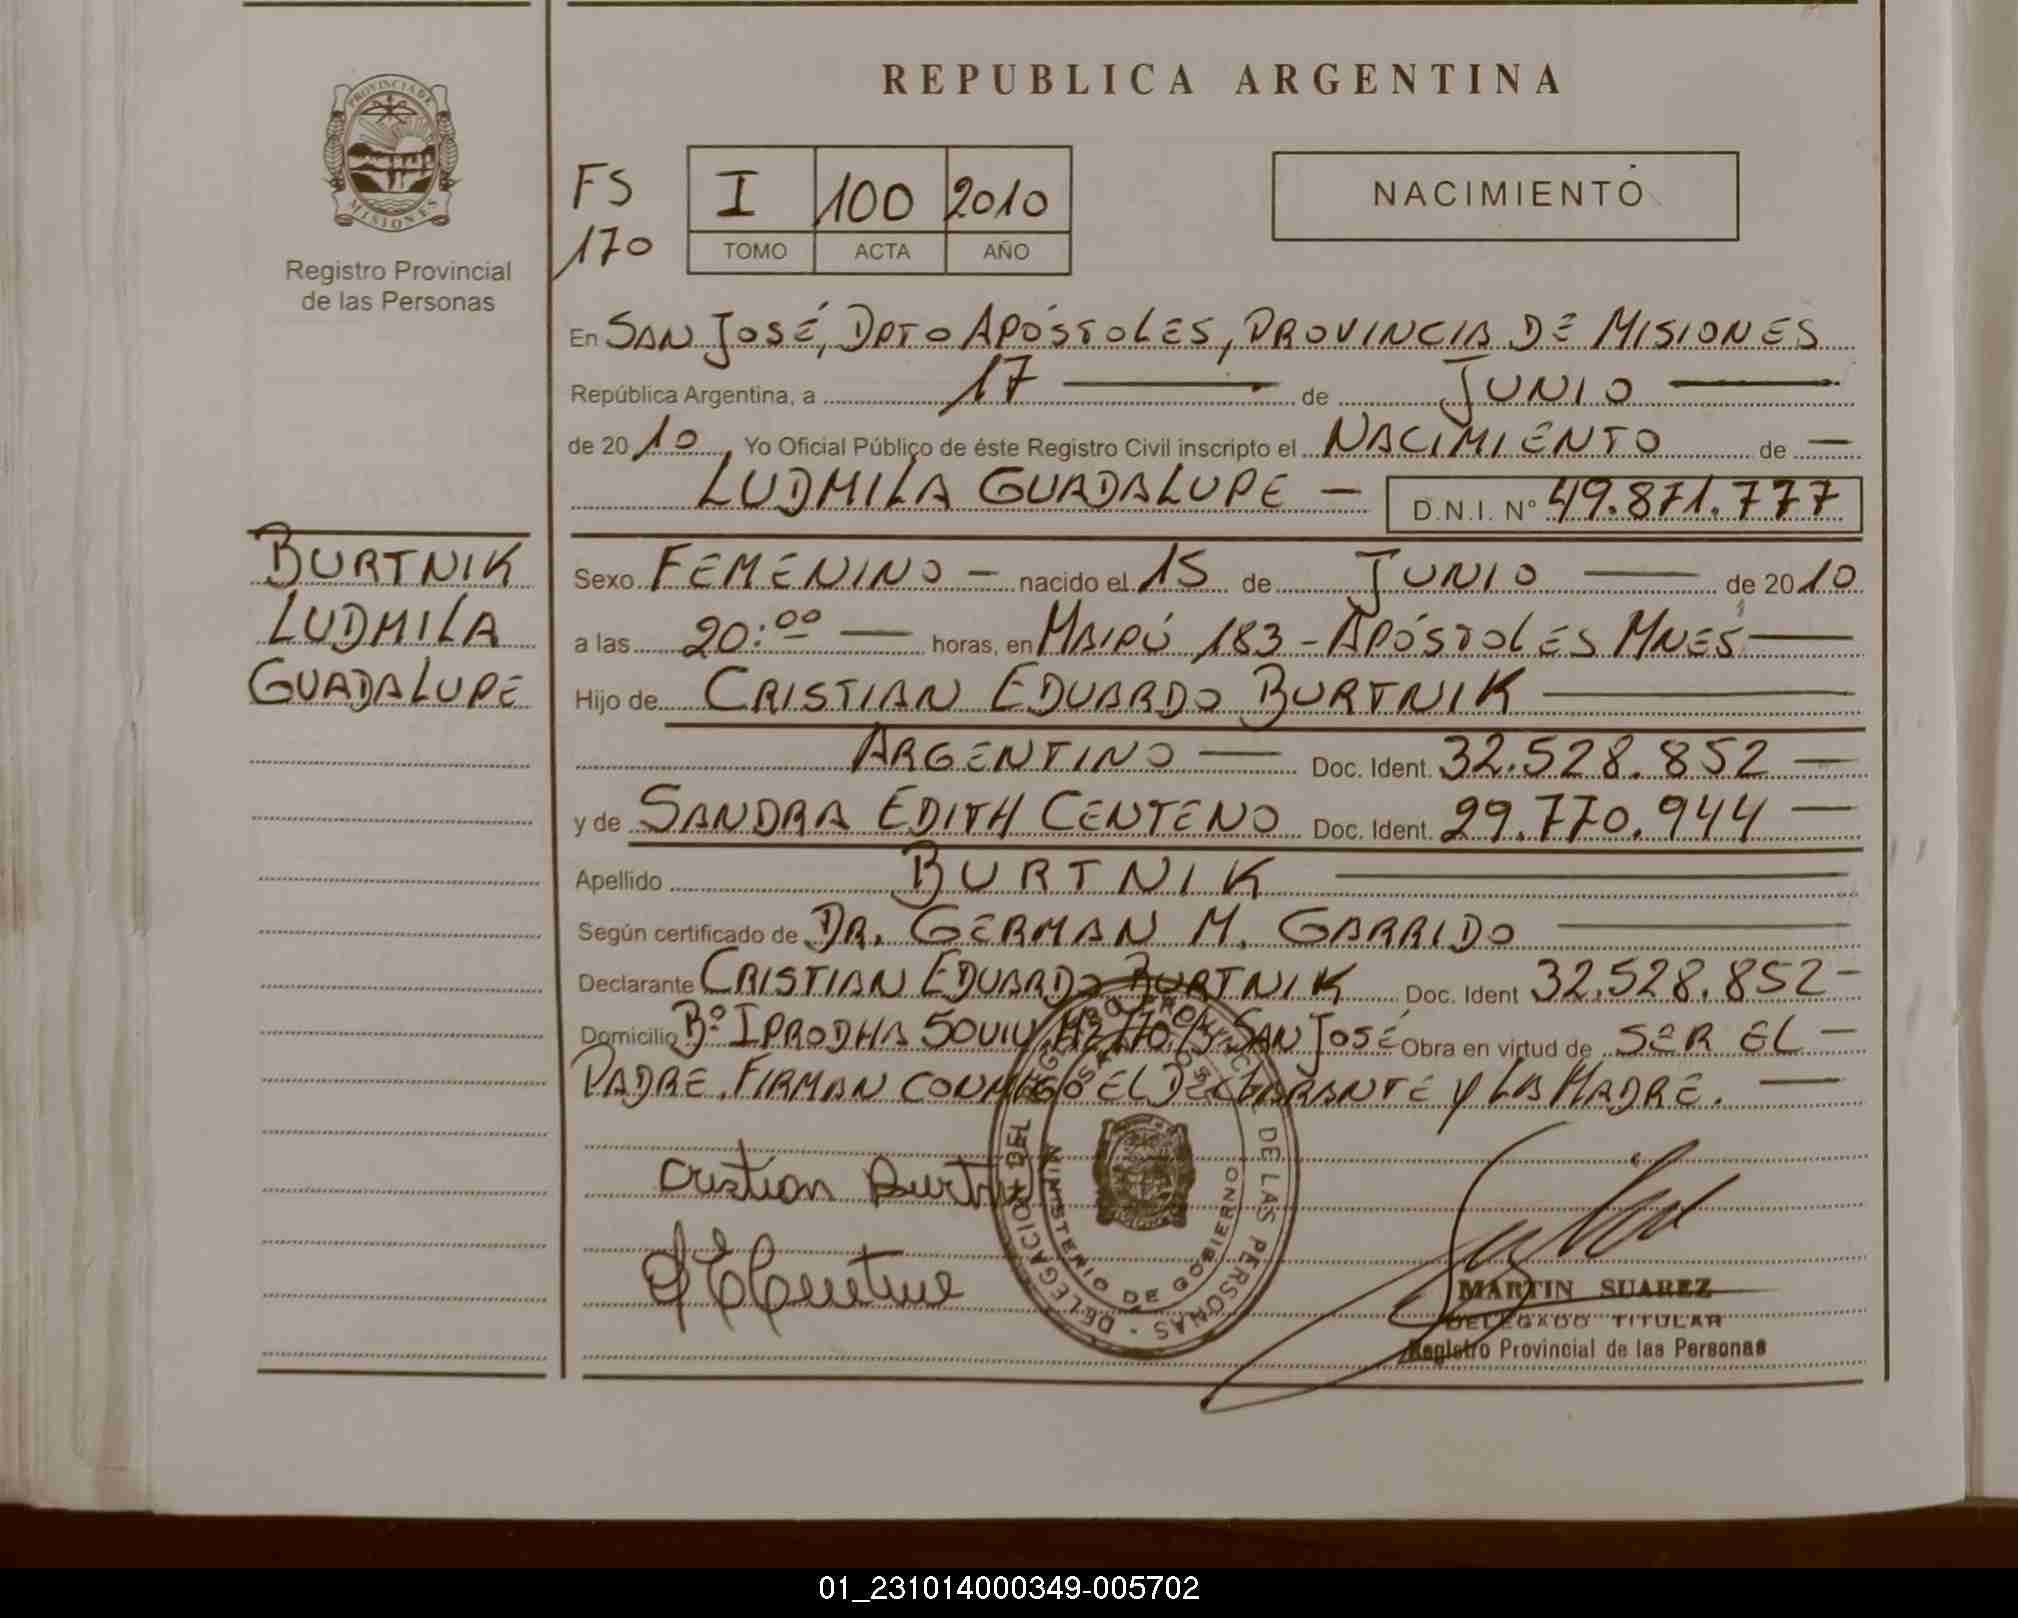 REPUBLICA ARGENTINA
PROVINCIA DE
MISIONES
Registro Provincial
de las Personas
FS
170
I 100 2010
TOMO ACTA AÑO
NACIMIENTO
En SAN JOSÉ, DPTO APÓSTOLES, PROVINCIA DE MISIONES
República Argentina, a 17 — de JUNIO —
de 2010 Yo Oficial Público de éste Registro Civil inscripto el NACIMIENTO de —
LUDMILA GUADALUPE — D.N.I. Nº 49.871.777
BURTNIK
LUDMILA
GUADALUPE
Sexo FEMENINO — nacido el 15 de JUNIO — de 2010
a las 20:00 — horas, en MAIPÚ 183 - APÓSTOLES MNES —
Hijo de CRISTIAN EDUARDO BURTNIK —
ARGENTINO — Doc. Ident. 32.528.852 —
y de SANDRA EDITH CENTENO Doc. Ident. 29.770.944 —
Apellido BURTNIK —
Según certificado de DR. GERMAN M. GARRIDO —
Declarante CRISTIAN EDUARDO BURTNIK Doc. Ident 32.528.852 -
Domicilio Bº IPRODHA 50 VIV SAN JOSÉ Obra en virtud de SER EL —
PADRE. FIRMAN CONMIGO EL DECLARANTE Y LA MADRE. —
Cristian Burtnik
DELEGACION DEL REGISTRO PROVINCIAL DE LAS PERSONAS -
SAN JOSE
MINISTERIO DE GOBIERNO
MARTIN SUAREZ
DELEGADO TITULAR
Registro Provincial de las Personas
01_231014000349-005702